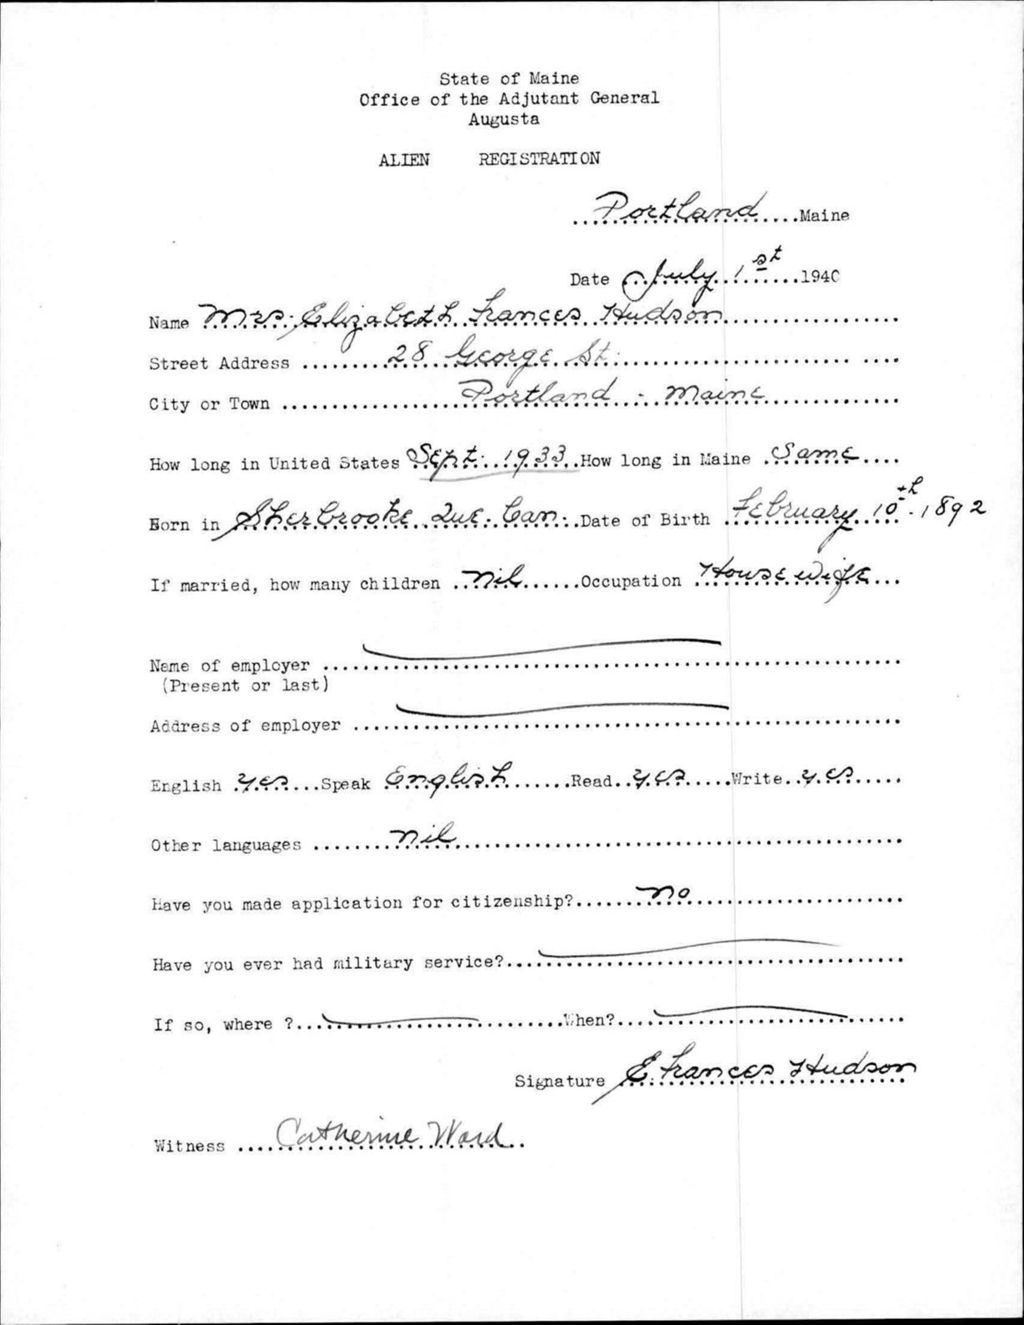 State of Maine
Office of the Adjutant General
Augusta
ALIEN REGISTRATION
Portland Maine
Date July 1st 1940
Name Mrs. Elizabeth Frances Hudson
Street Address 28 George St.
City or Town Portland - Maine
How long in United States Sept. 1933 How long in Maine Same
Born in Sherbrooke Que. Can. Date of Birth February 10th. 1892
If married, how many children nil Occupation Housewife
Name of employer
(Present or last)
Address of employer
English yes Speak English Read yes Write yes
Other languages nil
Have you made application for citizenship? no
Have you ever had military service?
If so, where ? When?
Signature E. Frances Hudson
Witness Catherine Ward